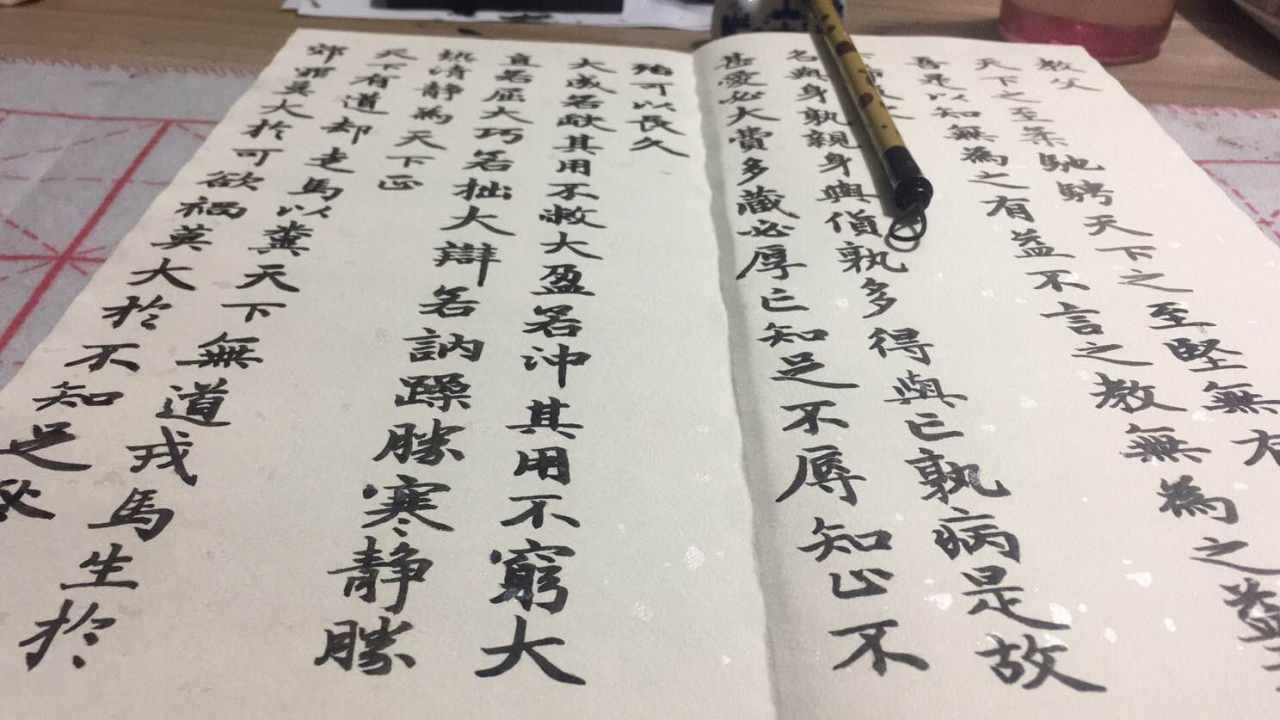 教父
天下之至柔馳騁天下之至堅無有
吾是以知無為之有益不言之教無為之益
名與身孰親身與貨孰多得與亡孰病是故
甚愛必大費多藏必厚亡知足不辱知止不
殆可以長久
大成若缺其用不敝大盈若沖其用不窮大
直若屈大巧若拙大辯若訥躁勝寒静勝
熱清静為天下正
天下有道却走馬以糞天下無道戎馬生於
郊罪莫大於可欲禍莫大於不知足